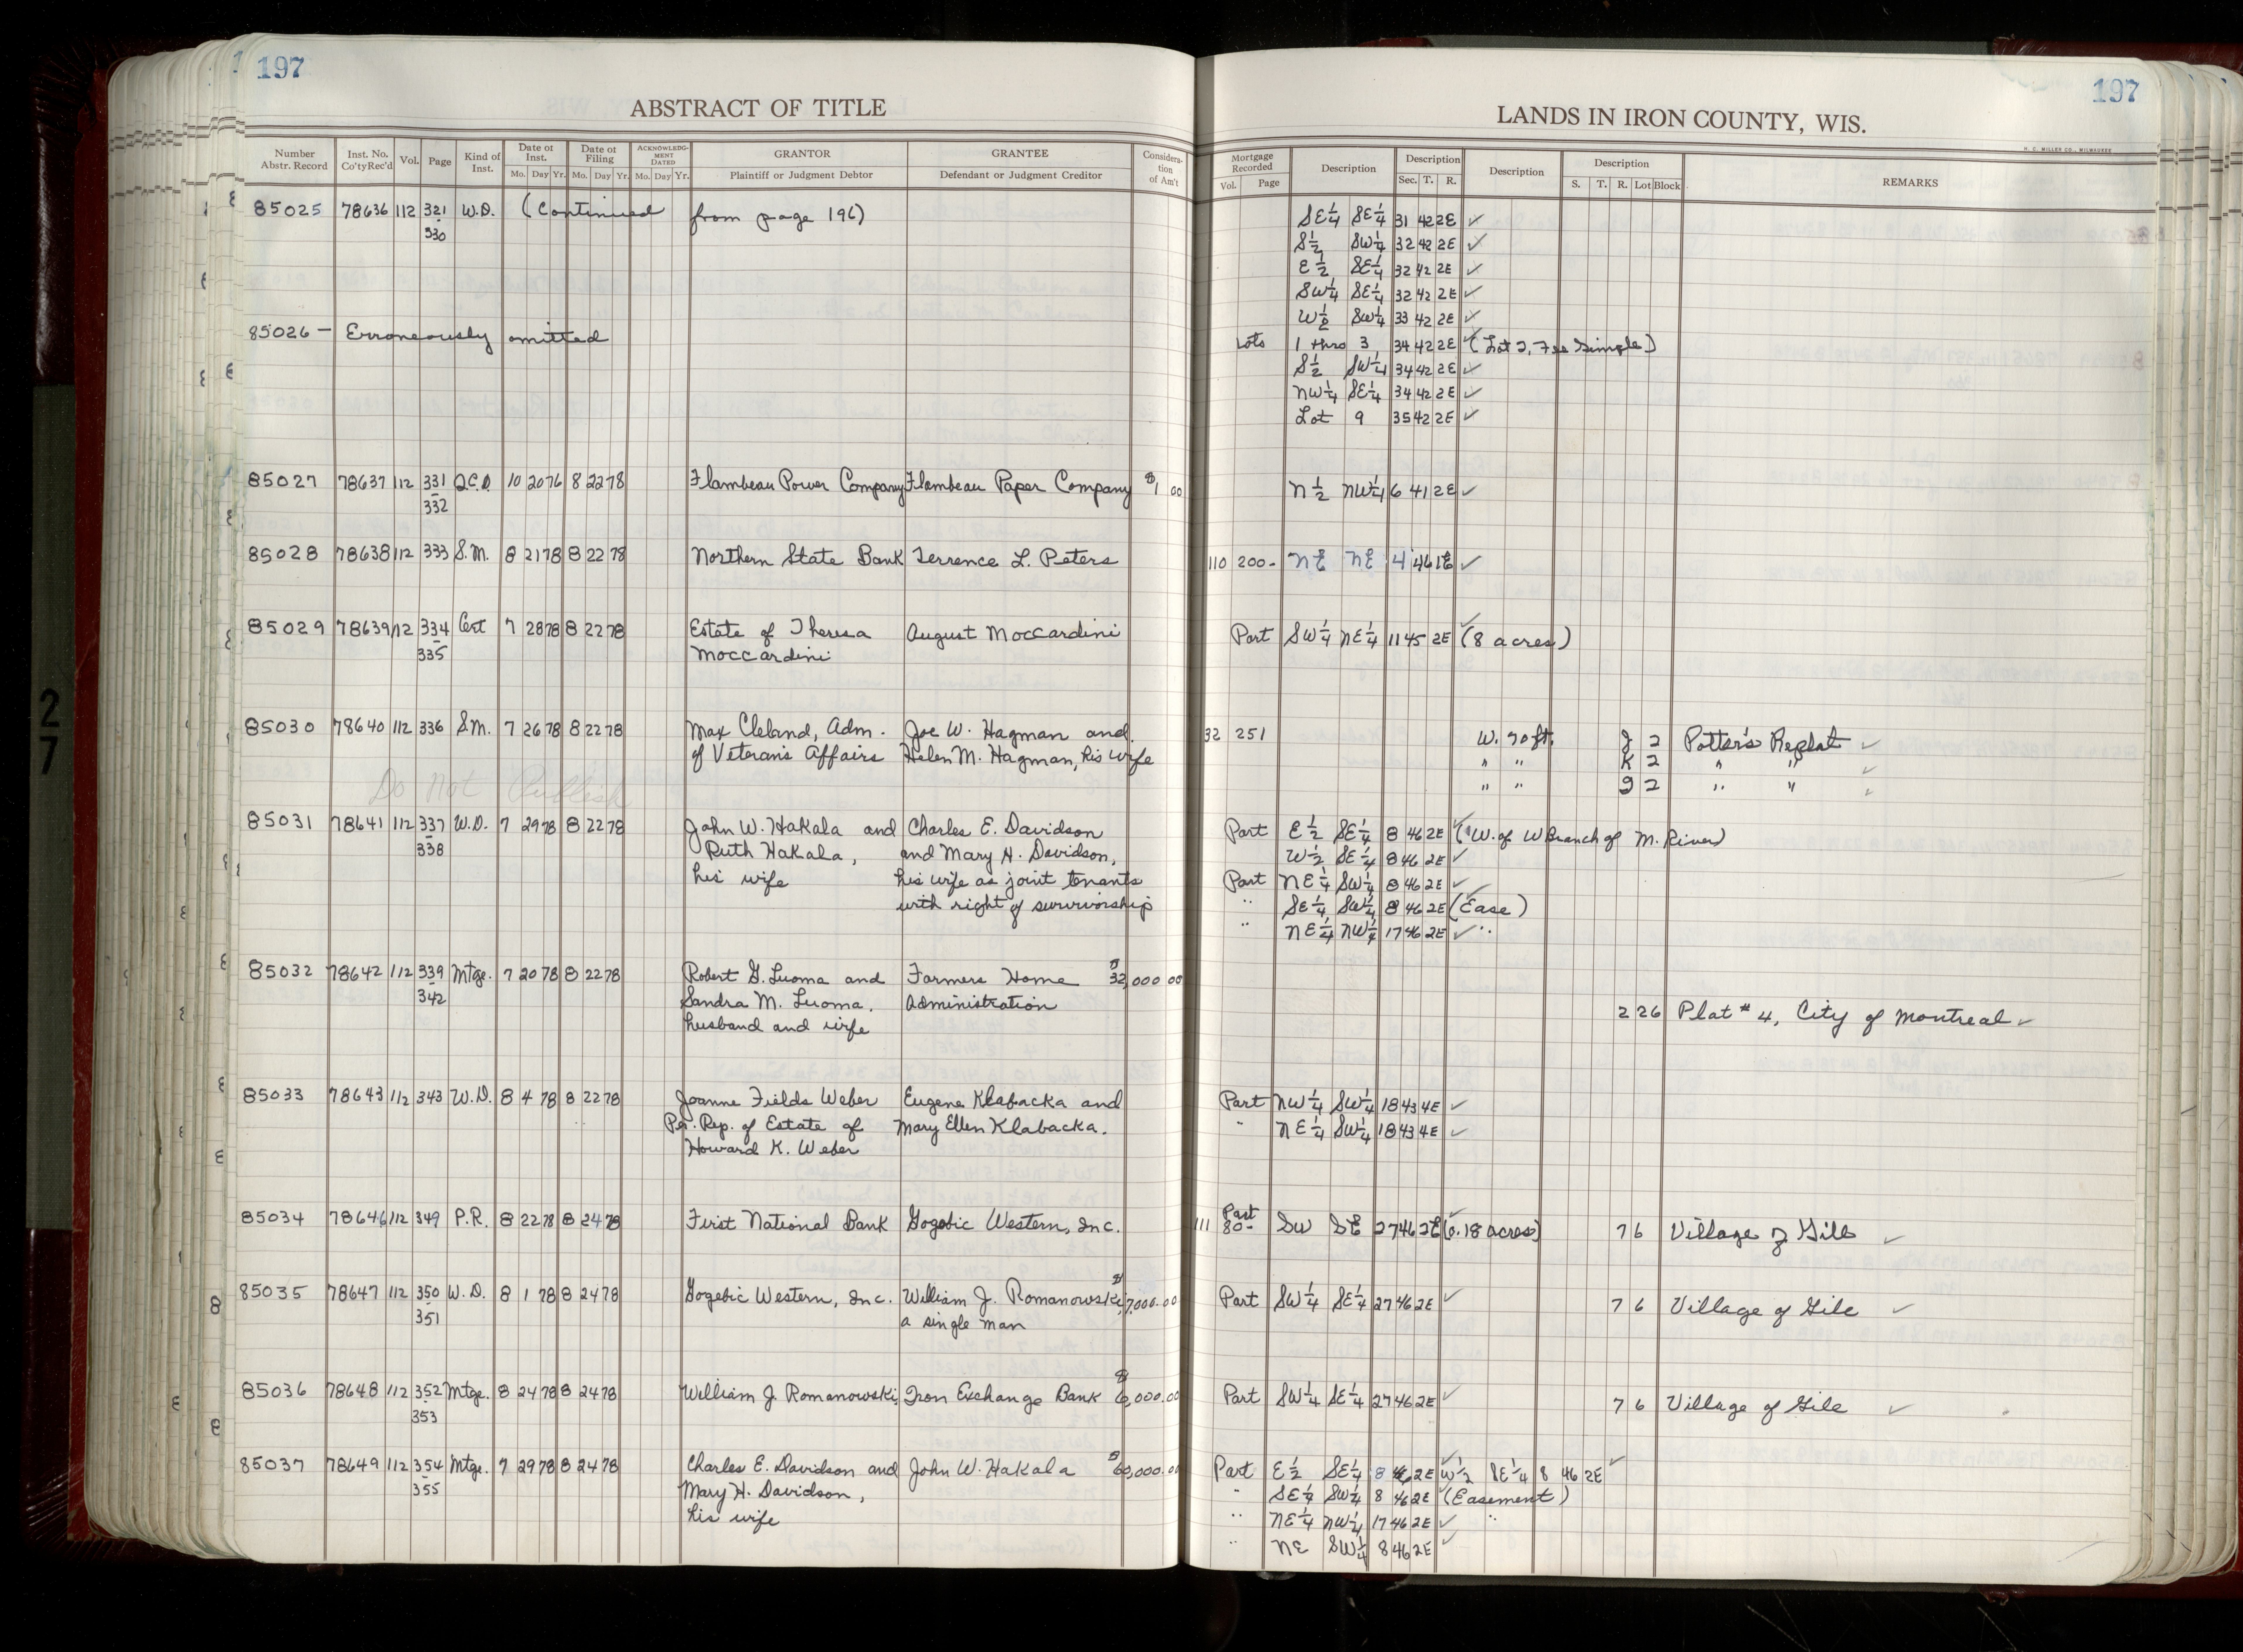 197
ABSTRACT OF TITLE
Number Abstr. Record Inst. No. Co'ty Rec'd Vol. Page Kind of Inst. Date of Inst. Mo. Day Yr. Date of Filing Mo. Day Yr. ACKNOWLEDGMENT DATED Mo. Day Yr. GRANTOR Plaintiff or Judgment Debtor GRANTEE Defendant or Judgment Creditor Consideration of Am't
85025 78636 112 321 W.D. (Continued from page 196)
330
85026 - Erroneously omitted
85027 78637 112 331 Q.C.D. 10 20 76 8 22 78 Flambeau Power Company Flambeau Paper Company $1 00
332
85028 78638 112 333 S.M. 8 21 78 8 22 78 Northern State Bank Terrence L. Peters
85029 78639 112 334 Cert 7 28 78 8 22 78 Estate of Theresa August Moccardini
335 Moccardini
85030 78640 112 336 S.M. 7 26 78 8 22 78 Max Cleland, Adm. Joe W. Hagman and
of Veterans Affairs Helen M. Hagman, his wife
Do Not Publish
85031 78641 112 337 W.D. 7 29 78 8 22 78 John W. Hakala and Charles E. Davidson
338 Ruth Hakala, and Mary H. Davidson,
his wife his wife as joint tenants
with right of survivorship
85032 78642 112 339 Mtge. 7 20 78 8 22 78 Robert G. Luoma and Farmers Home $32,000 00
342 Sandra M. Luoma, Administration
husband and wife
85033 78643 112 343 W.D. 8 4 78 8 22 78 Joanne Fields Weber Eugene Klabacka and
Per. Rep. of Estate of Mary Ellen Klabacka.
Howard K. Weber
85034 78646 112 349 P.R. 8 22 78 8 24 78 First National Bank Gogebic Western, Inc.
85035 78647 112 350 W.D. 8 1 78 8 24 78 Gogebic Western, Inc. William J. Romanowski, $7,000.00
351 a single man
85036 78648 112 352 Mtge. 8 24 78 8 24 78 William J. Romanowski, Iron Exchange Bank $6,000.00
353
85037 78649 112 354 Mtge. 7 29 78 8 24 78 Charles E. Davidson and John W. Hakala $60,000.00
355 Mary H. Davidson,
his wife
197
LANDS IN IRON COUNTY, WIS.
H. C. MILLER CO., MILWAUKEE
Mortgage Recorded Vol. Page Description Description Sec. T. R. Description Description S. T. R. Lot Block REMARKS
SE¼ SE¼ 31 42 2E ✓
S½ SW¼ 32 42 2E ✓
E½ SE¼ 32 42 2E ✓
SW¼ SE¼ 32 42 2E ✓
W½ SW¼ 33 42 2E ✓
Lots 1 thro 3 34 42 2E ✓ (Lot 2, Fee Simple)
S½ SW¼ 34 42 2E ✓
NW¼ SE¼ 34 42 2E ✓
Lot 9 35 42 2E ✓
N½ NW¼ 6 41 2E ✓
110 200- NE NE 4 46 1E ✓
Part SW¼ NE¼ 11 45 2E ✓ (8 acres)
32 251 W. 70 ft. J 2 Potter's Replat ✓
" " K 2 " " ✓
" " 9 2 " " ✓
Part E½ SE¼ 8 46 2E ✓ (W. of W Branch of M. River)
W½ SE¼ 8 46 2E ✓
Part NE¼ SW¼ 8 46 2E ✓
" SE¼ SW¼ 8 46 2E ✓ (Ease)
" NE¼ NW¼ 17 46 2E ✓ "
2 26 Plat #4, City of Montreal ✓
Part NW¼ SW¼ 18 43 4E ✓
" NE¼ SW¼ 18 43 4E ✓
Part
111 80- SW SE 27 46 2E ✓ (0.18 acres) 7 6 Village of Gile ✓
Part SW¼ SE¼ 27 46 2E ✓ 7 6 Village of Gile ✓
Part SW¼ SE¼ 27 46 2E ✓ 7 6 Village of Gile ✓
Part E½ SE¼ 8 46 2E ✓ W½ SE¼ 8 46 2E ✓
" SE¼ SW¼ 8 46 2E ✓ (Easement)
" NE¼ NW¼ 17 46 2E ✓ "
" NE SW¼ 8 46 2E ✓
27